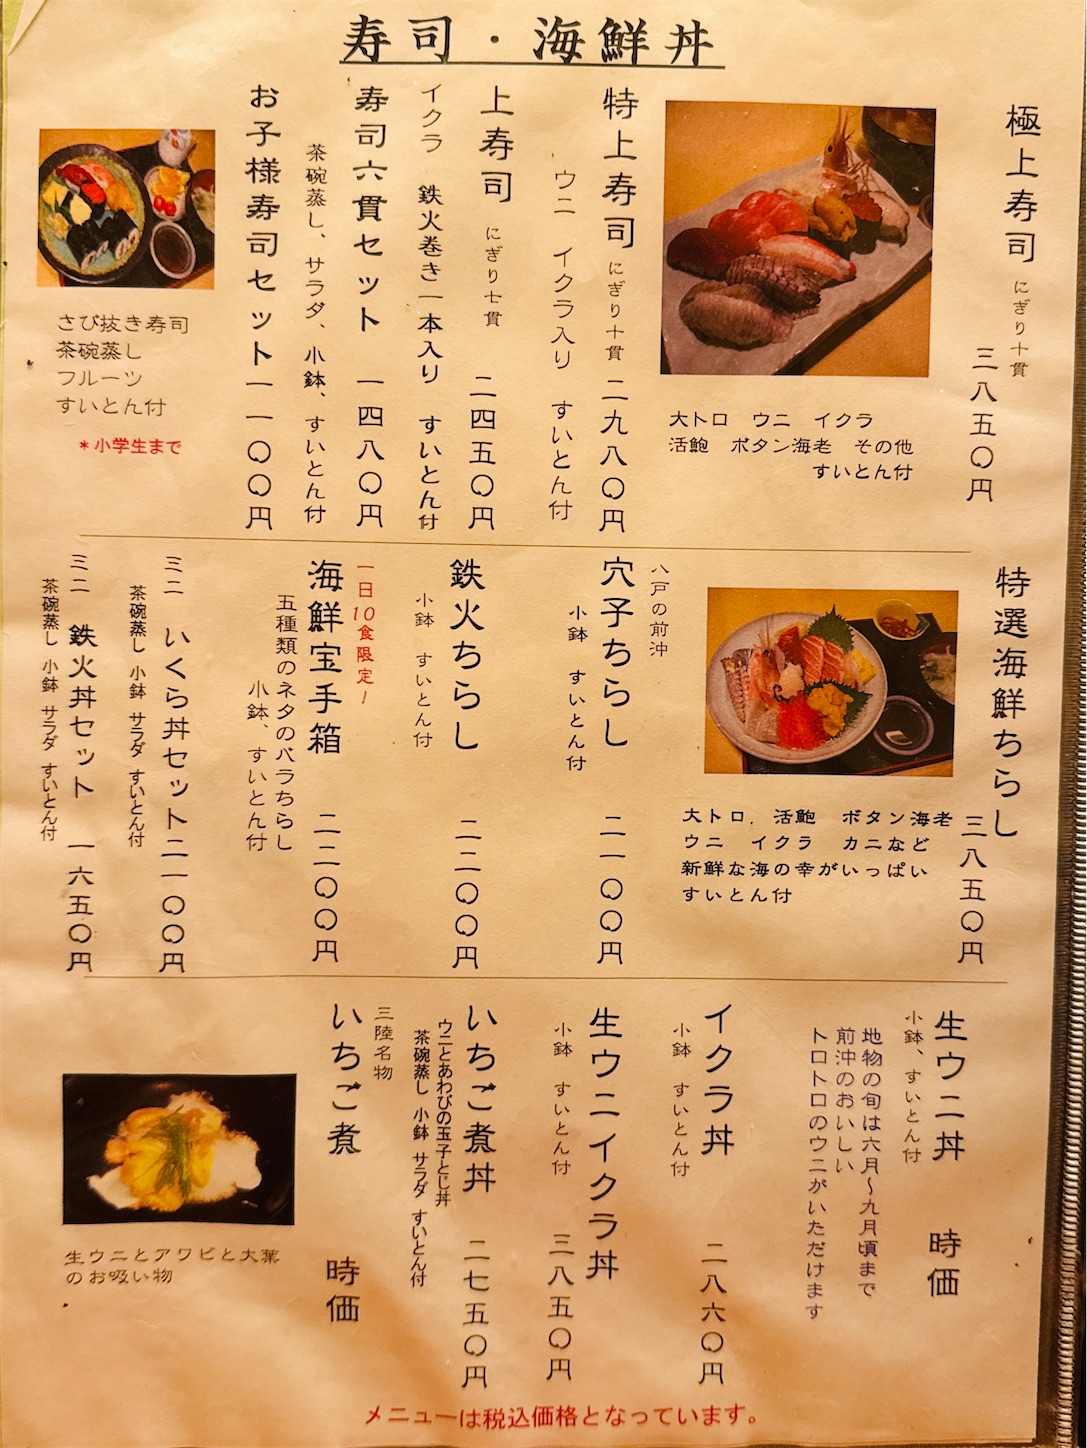 寿司・海鮮丼
極上寿司 にぎり十貫
三八五〇円
大トロ ウニ イクラ
活鮑 ボタン海老 その他
すいとん付
特上寿司 にぎり十貫 二九八〇円
ウニ イクラ入り すいとん付
上寿司 にぎり七貫 二四五〇円
イクラ 鉄火巻き一本入り すいとん付
寿司六貫セット 一四八〇円
茶碗蒸し、サラダ、小鉢、すいとん付
お子様寿司セット一一〇〇円
さび抜き寿司
茶碗蒸し
フルーツ
すいとん付
*小学生まで
特選海鮮ちらし
三八五〇円
大トロ. 活鮑 ボタン海老
ウニ イクラ カニなど
新鮮な海の幸がいっぱい
すいとん付
八戸の前沖
穴子ちらし 二一〇〇円
小鉢 すいとん付
鉄火ちらし 二二〇〇円
小鉢 すいとん付
一日10食限定!
海鮮宝手箱 二二〇〇円
五種類のネタのバラちらし
小鉢、すいとん付
ミニ いくら丼セット二一〇〇円
茶碗蒸し 小鉢 サラダ すいとん付
ミニ 鉄火丼セット 一六五〇円
茶碗蒸し 小鉢 サラダ すいとん付
生ウニ丼 時価
小鉢、すいとん付
地物の旬は六月〜九月頃まで
前沖のおいしい
トロトロのウニがいただけます
イクラ丼 二八六〇円
小鉢 すいとん付
生ウニイクラ丼
三八五〇円
小鉢 すいとん付
いちご煮丼 二七五〇円
ウニとあわびの玉子とじ丼
茶碗蒸し 小鉢 サラダ すいとん付
三陸名物
いちご煮 時価
生ウニとアワビと大葉
のお吸い物
メニューは税込価格となっています。